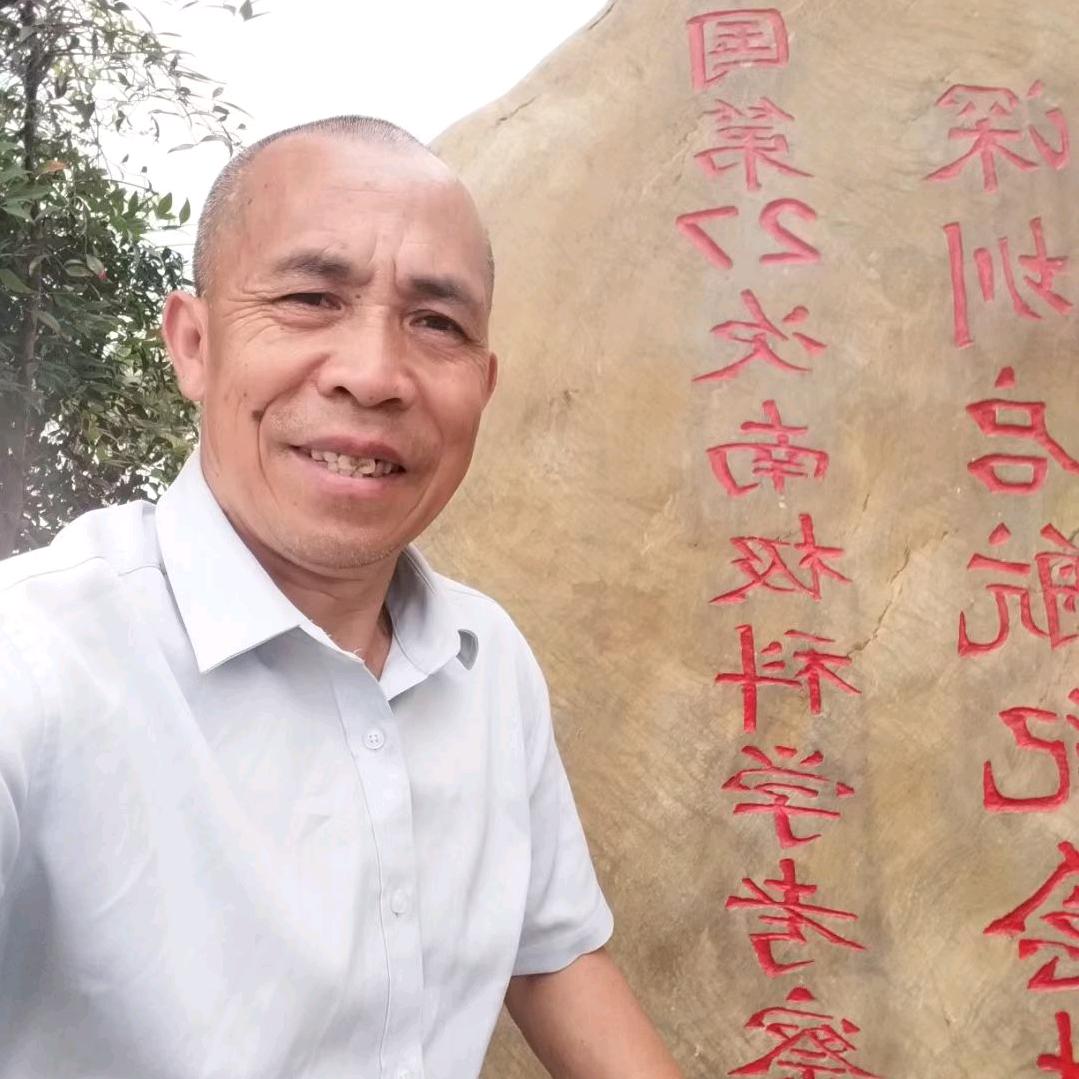 国第27次南极科学考察
深圳启航纪念